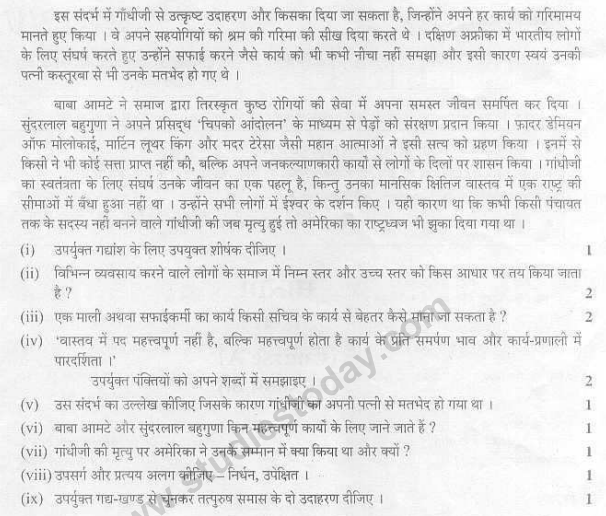 इस संदर्भ में गाँधीजी से उत्कृष्ट उदाहरण और किसका दिया जा सकता है, जिन्होंने अपने हर कार्य को गरिमामय
मानते हुए किया । वे अपने सहयोगियों को श्रम की गरिमा की सीख दिया करते थे । दक्षिण अफ्रीका में भारतीय लोगों
के लिए संघर्ष करते हुए उन्होंने सफाई करने जैसे कार्य को भी कभी नीचा नहीं समझा और इसी कारण स्वयं उनकी
पत्नी कस्तूरबा से भी उनके मतभेद हो गए थे ।
बाबा आमटे ने समाज द्वारा तिरस्कृत कुष्ठ रोगियों की सेवा में अपना समस्त जीवन समर्पित कर दिया ।
सुंदरलाल बहुगुणा ने अपने प्रसिद्ध 'चिपको आंदोलन' के माध्यम से पेड़ों को संरक्षण प्रदान किया । फ़ादर डेमियन
ऑफ मोलोकाई, मार्टिन लूथर किंग और मदर टेरेसा जैसी महान आत्माओं ने इसी सत्य को ग्रहण किया । इनमें से
किसी ने भी कोई सत्ता प्राप्त नहीं की, बल्कि अपने जनकल्याणकारी कार्यों से लोगों के दिलों पर शासन किया । गांधीजी
का स्वतंत्रता के लिए संघर्ष उनके जीवन का एक पहलू है, किन्तु उनका मानसिक क्षितिज वास्तव में एक राष्ट्र की
सीमाओं में बँधा हुआ नहीं था । उन्होंने सभी लोगों में ईश्वर के दर्शन किए । यही कारण था कि कभी किसी पंचायत
तक के सदस्य नहीं बनने वाले गाँधीजी की जब मृत्यु हुई तो अमेरिका का राष्ट्रध्वज भी झुका दिया गया था ।
(i) उपर्युक्त गद्यांश के लिए उपयुक्त शीर्षक दीजिए । 1
(ii) विभिन्न व्यवसाय करने वाले लोगों के समाज में निम्न स्तर और उच्च स्तर को किस आधार पर तय किया जाता
है ? 2
(iii) एक माली अथवा सफाईकर्मी का कार्य किसी सचिव के कार्य से बेहतर कैसे माना जा सकता है ? 2
(iv) 'वास्तव में पद महत्त्वपूर्ण नहीं है, बल्कि महत्त्वपूर्ण होता है कार्य के प्रति समर्पण भाव और कार्य-प्रणाली में
पारदर्शिता ।'
उपर्युक्त पंक्तियों को अपने शब्दों में समझाइए । 2
(v) उस संदर्भ का उल्लेख कीजिए जिसके कारण गांधीजी का अपनी पत्नी से मतभेद हो गया था । 1
(vi) बाबा आमटे और सुंदरलाल बहुगुणा किन महत्त्वपूर्ण कार्यों के लिए जाने जाते हैं ? 1
(vii) गांधीजी की मृत्यु पर अमेरिका ने उनके सम्मान में क्या किया था और क्यों ? 1
(viii) उपसर्ग और प्रत्यय अलग कीजिए – निर्धन, उपेक्षित । 1
(ix) उपर्युक्त गद्य-खण्ड से चुनकर तत्पुरुष समास के दो उदाहरण दीजिए । 1
www.studiestoday.com